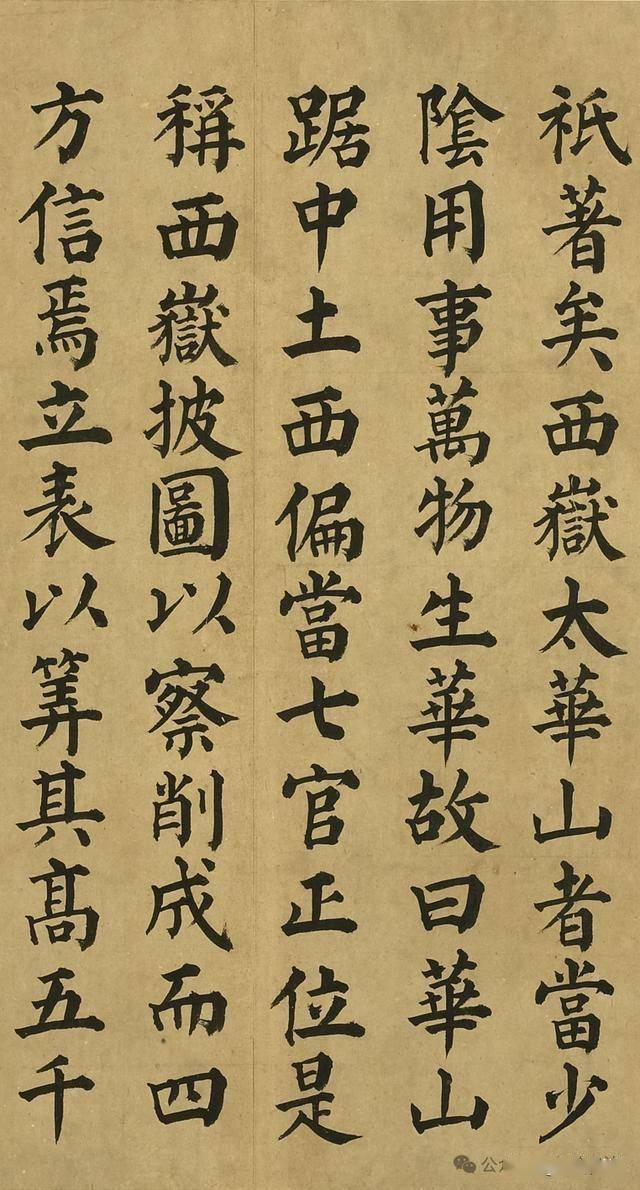 祇著矣西嶽太華山者當少
陰用事萬物生華故曰華山
踞中土西偏當七官正位是
稱西嶽披圖以察削成而四
方信焉立表以筭其高五千
公